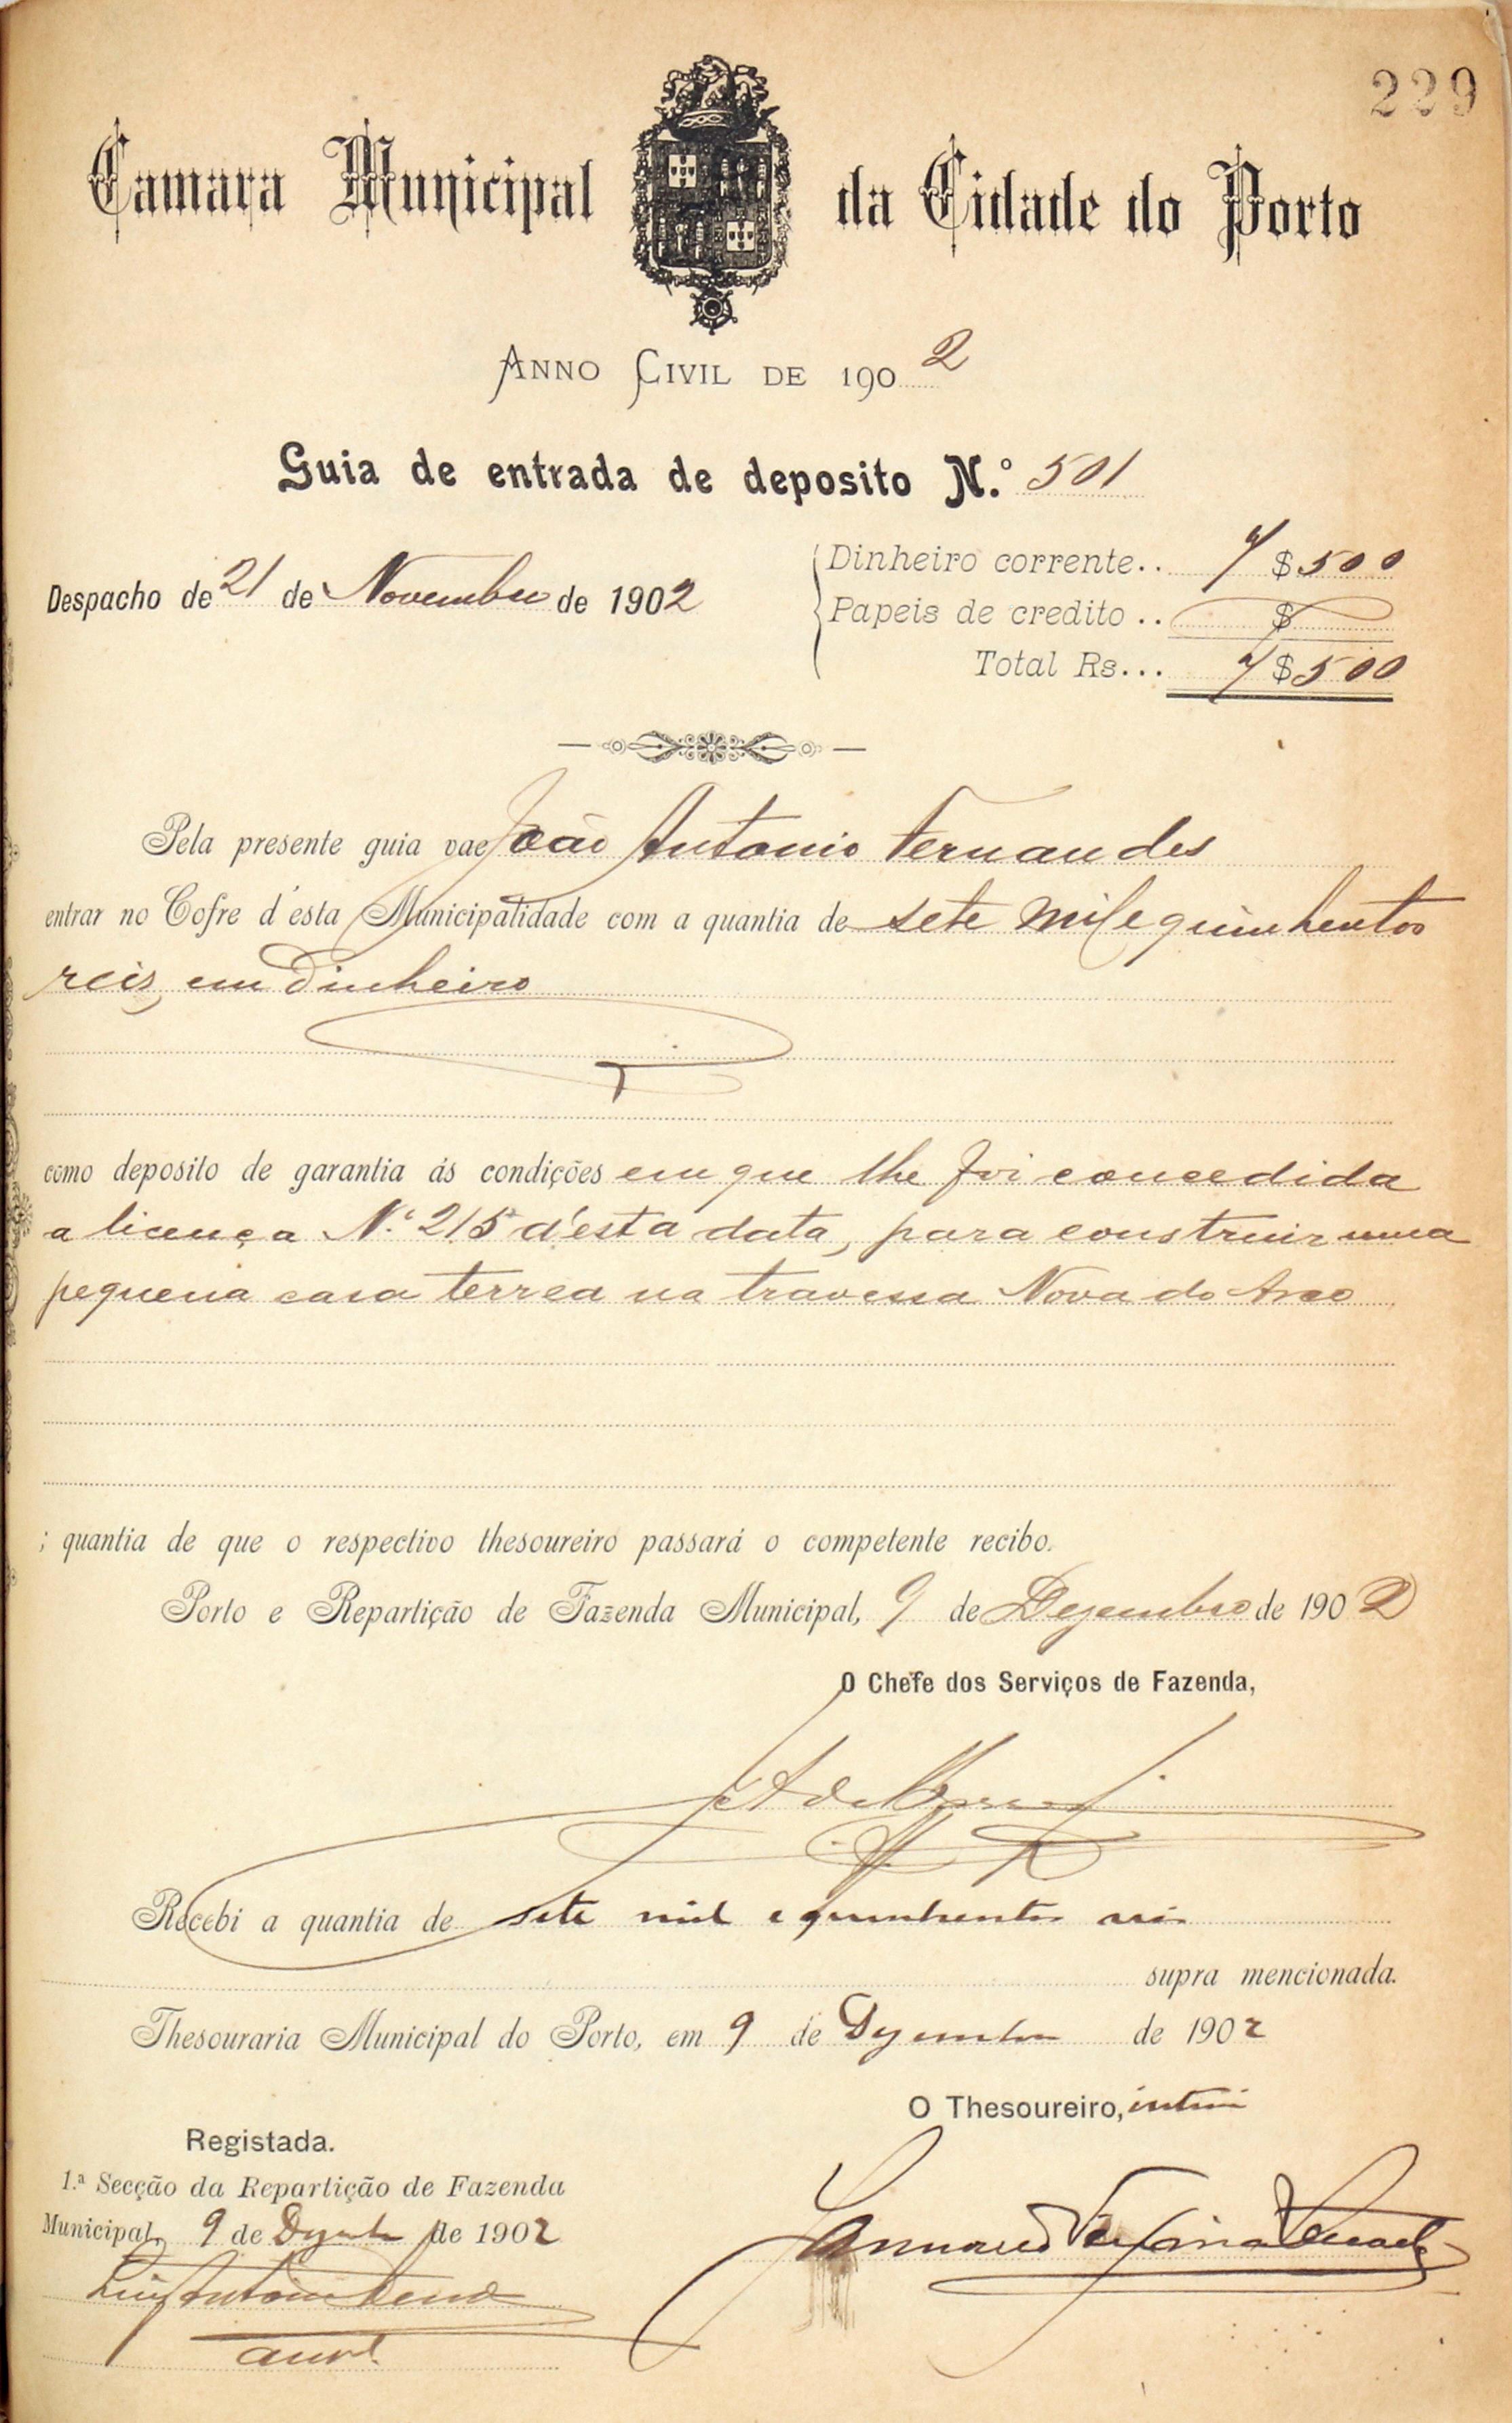 229
Camara Municipal da Cidade do Porto
ANNO CIVIL DE 1902
Guia de entrada de deposito N.º 501
Despacho de 21 de Novembro de 1902
Dinheiro corrente.. 7$500
Papeis de credito .. $
Total Rs... 7$500
Pela presente guia vae João Antonio Fernandes
entrar no Cofre d'esta Municipalidade com a quantia de sete mil e quinhentos
reis, em dinheiro
como deposito de garantia ás condições em que lhe foi concedida
a licença N.º 215 d'esta data, para construir uma
pequena casa terrea na travessa Nova do Arco
; quantia de que o respectivo thesoureiro passará o competente recibo.
Porto e Repartição de Fazenda Municipal, 9 de Dezembro de 1902
O Chefe dos Serviços de Fazenda,
Recebi a quantia de sete mil e quinhentos reis
supra mencionada.
Thesouraria Municipal do Porto, em 9 de Dezembro de 1902
O Thesoureiro, intº
Registada.
1.ª Secção da Repartição de Fazenda
Municipal, 9 de Dezembro de 1902
Luiz Antonio